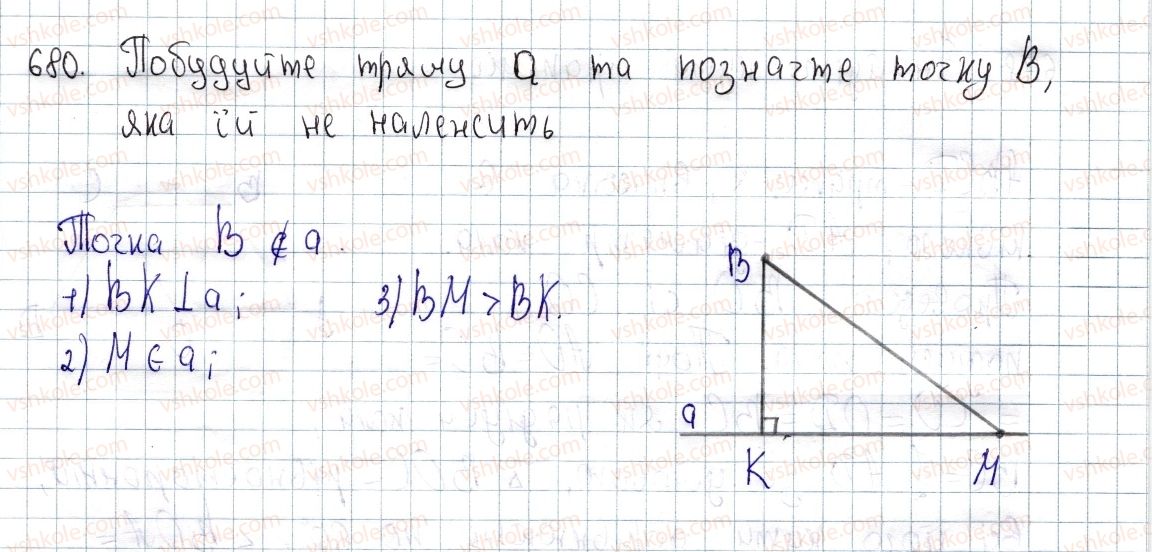 680. Побудуйте пряму a та позначте точку B,
яка їй не належить
Точка B ∉ a.
1) BK ⊥ a;
3) BM > BK.
2) M ∈ a;
B
a
K
M
vshkole.com